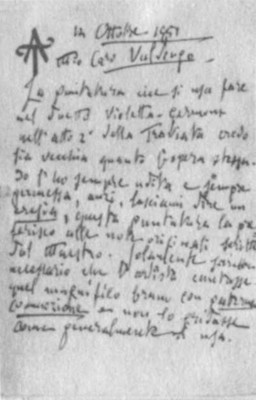 Ottobre 1951
Caro Valdengo.
La puntatura che si usa fare
nel duetto Violetta-Germont
nell'atto 2° della Traviata credo
sia vecchia quanto l'opera stessa.
Io l'ho sempre udita e sempre
permessa, anzi, lasciami dire un
eresia, questa puntatura la pre
ferisco alle note originali scritte
dal Maestro. Solamente
necessario che l'artista cantasse
quel magnifico brano con paterna
commozione e non lo gridasse
come generalmente si usa.